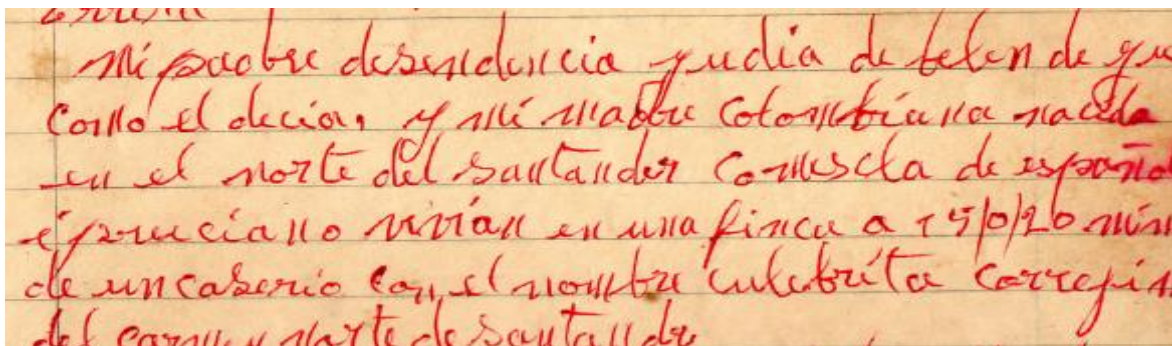 mi padre desendencia yudia de belen de ju
como el decia, y mi madre colombiana nacida
en el norte del santander comescla de español
é pruciano vivían en una finca a 15/0/20 min
de un caserio con el nombre culebríta corregim
del carmen norte de santander